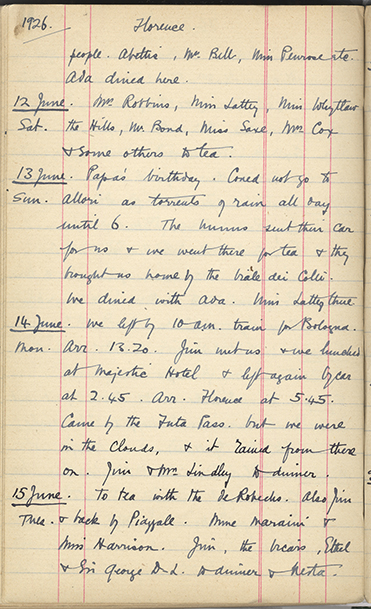 1926. Florence.
people. Abetti, Mr. Bill, Miss Penrose etc.
Ada dined here.
12 June. Mrs Robbins, Miss Lattey, Miss Whyttlaw
Sat. the Hills, Mr. Bond, Miss Saxe, Mrs Cox
& some others to tea.
13 June. Papa's birthday. Coned not go to
Sun. Allori as torrents of rain all day
until 6. The sent their car
for us & we went there for tea & they
brought us home by the Viale dei Colli.
We dined with Ada. Miss Lattey there
14 June. We left by 10 am. train for Bologna.
Mon. Arr. 13.20. Jim met us & we lunched
at Majestic Hotel & left again by car
at 2.45. Arr. Florence at 5.45.
Came by the Futa Pass. but we were
in the clouds, & it rained from there
on. Jim & Mrs Lindley to dinner.
15 June. To tea with the De Robecks. Also Jim
Tues. & back by Piazzale. Mme Maraini &
Miss Harrison. Jim, the Vicars, Ethel
& Sir George D.L. to dinner & Nesta.